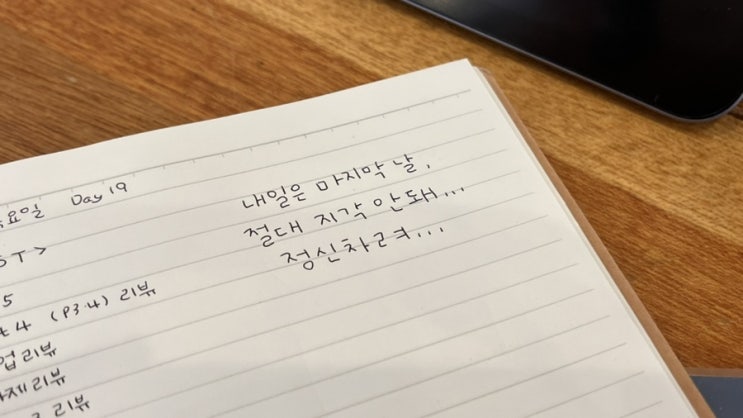 요일 Day 19
내일은 마지막 날,
절대 지각 안돼...
정신차려...
ST>
5
4 (P3.4) 리뷰
업리뷰
제리뷰
리뷰